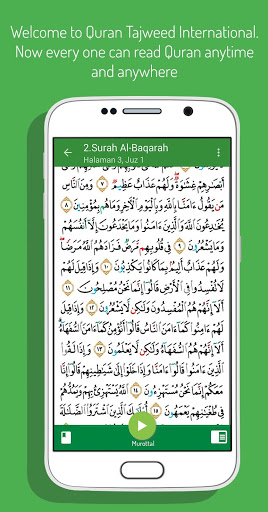 Welcome to Quran Tajweed International.
Now every one can read Quran anytime
and anywhere
2.Surah Al-Baqarah
Halaman 3, Juz 1
أَبْصَٰرِهِمْ غِشَٰوَةٌ وَلَهُمْ عَذَابٌ عَظِيمٌ ٧ وَمِنَ ٱلنَّاسِ
مَن يَقُولُ ءَامَنَّا بِٱللَّهِ وَبِٱلْيَوْمِ ٱلْءَاخِرِ وَمَا هُم بِمُؤْمِنِينَ ٨
يُخَٰدِعُونَ ٱللَّهَ وَٱلَّذِينَ ءَامَنُوا۟ وَمَا يَخْدَعُونَ إِلَّآ أَنفُسَهُمْ
وَمَا يَشْعُرُونَ ٩ فِى قُلُوبِهِم مَّرَضٌ فَزَادَهُمُ ٱللَّهُ مَرَضًا
وَلَهُمْ عَذَابٌ أَلِيمٌۢ بِمَا كَانُوا۟ يَكْذِبُونَ ١٠ وَإِذَا قِيلَ لَهُمْ
لَا تُفْسِدُوا۟ فِى ٱلْأَرْضِ قَالُوٓا۟ إِنَّمَا نَحْنُ مُصْلِحُونَ ١١
أَلَآ إِنَّهُمْ هُمُ ٱلْمُفْسِدُونَ وَلَٰكِن لَّا يَشْعُرُونَ ١٢ وَإِذَا قِيلَ
لَهُمْ ءَامِنُوا۟ كَمَآ ءَامَنَ ٱلنَّاسُ قَالُوٓا۟ أَنُؤْمِنُ كَمَآ ءَامَنَ ٱلسُّفَهَآءُ
أَلَآ إِنَّهُمْ هُمُ ٱلسُّفَهَآءُ وَلَٰكِن لَّا يَعْلَمُونَ ١٣ وَإِذَا لَقُوا۟
ٱلَّذِينَ ءَامَنُوا۟ قَالُوٓا۟ ءَامَنَّا وَإِذَا خَلَوْا۟ إِلَىٰ شَيَٰطِينِهِمْ قَالُوٓا۟ إِنَّا
مَعَكُمْ إِنَّمَا نَحْنُ مُسْتَهْزِءُونَ ١٤ ٱللَّهُ يَسْتَهْزِئُ بِهِمْ وَيَمُدُّهُمْ
فِى طُغْيَٰنِهِمْ يَعْمَهُونَ ١٥ أُو۟لَٰٓئِكَ ٱلَّذِينَ ٱشْتَرَوُا۟ ٱلضَّلَٰلَةَ
Murottal